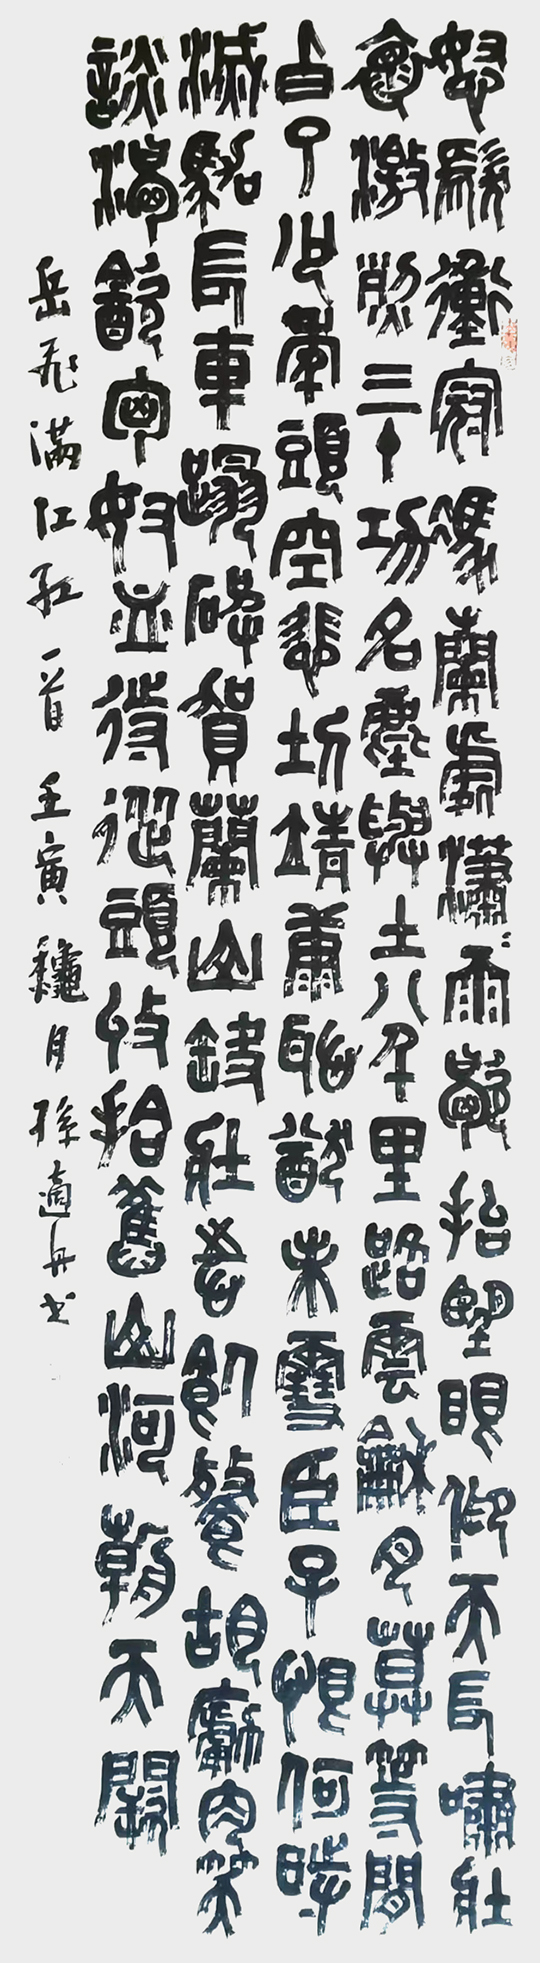 怒髮衝冠憑蘭處瀟〻雨歇抬望眼仰天長嘯壯
懷激烈三十功名塵與土八千里路雲龢月莫等閒
白了少年頭空悲切靖康恥猶未雪臣子恨何時
滅駕長車蹋碎賀蘭山缺壯志飢餐胡虜肉笑
談渴飲匈奴血待從頭收拾舊山河朝天闕
岳飛滿江紅一首壬寅龝月孫適丹書